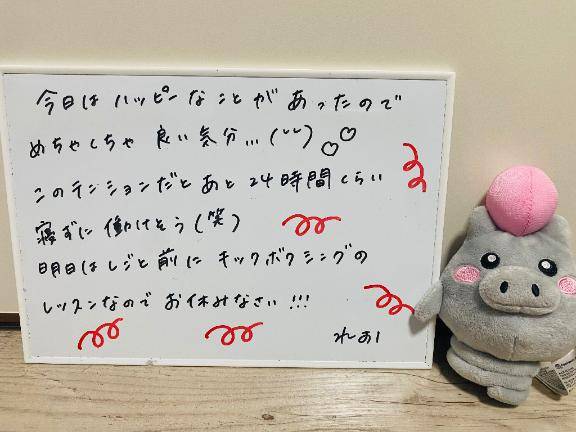 今日はハッピーなことがあったので
めちゃくちゃ良い気分…(˘˘)♡♡
このテンションだとあと24時間くらい
寝ずに働けそう(笑)
明日はしごと前にキックボクシングの
レッスンなのでお休みなさい!!!
れお1